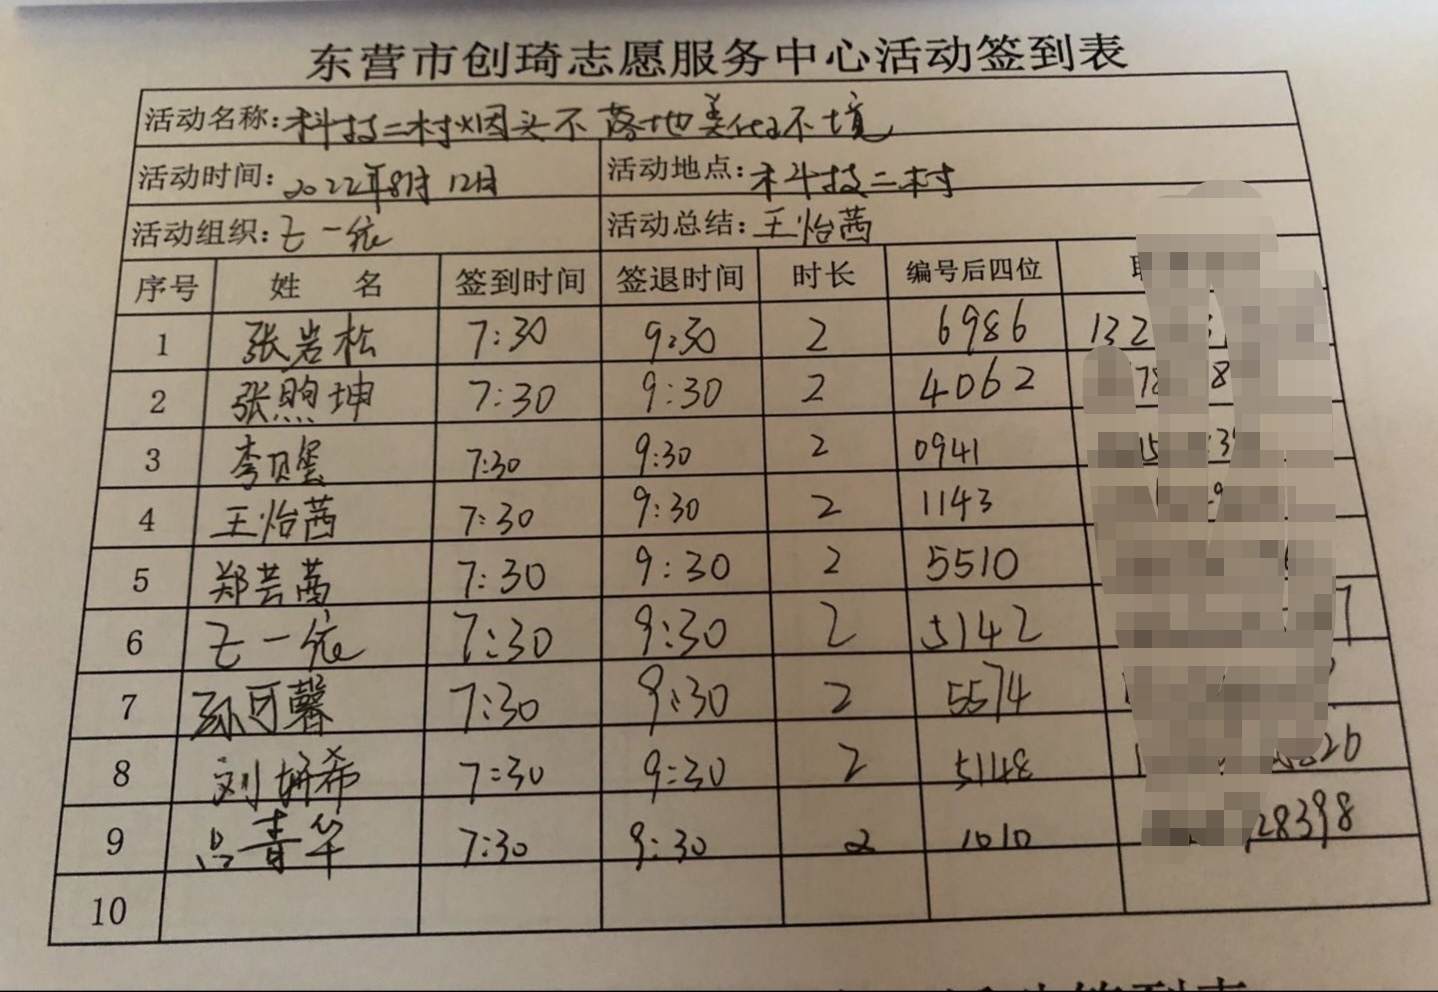 东营市创琦志愿服务中心活动签到表
活动名称:科技二村烟头不落地美化环境
活动时间:2022年8月12日 活动地点:科技二村
活动组织:弋一依 活动总结:王怡茜
序号 姓 名 签到时间 签退时间 时长 编号后四位
1 张岩松 7:30 9:30 2 6986 132
2 张煦坤 7:30 9:30 2 4062 78 8
3 李贝 7:30 9:30 2 0941
4 王怡茜 7:30 9:30 2 1143
5 郑芸茜 7:30 9:30 2 5510
6 一依 7:30 9:30 2 5142 7
7 孙可馨 7:30 9:30 2 5574
8 刘妍希 7:30 9:30 2 5148 26
9 吕青华 7:30 9:30 2 1010 28398
10